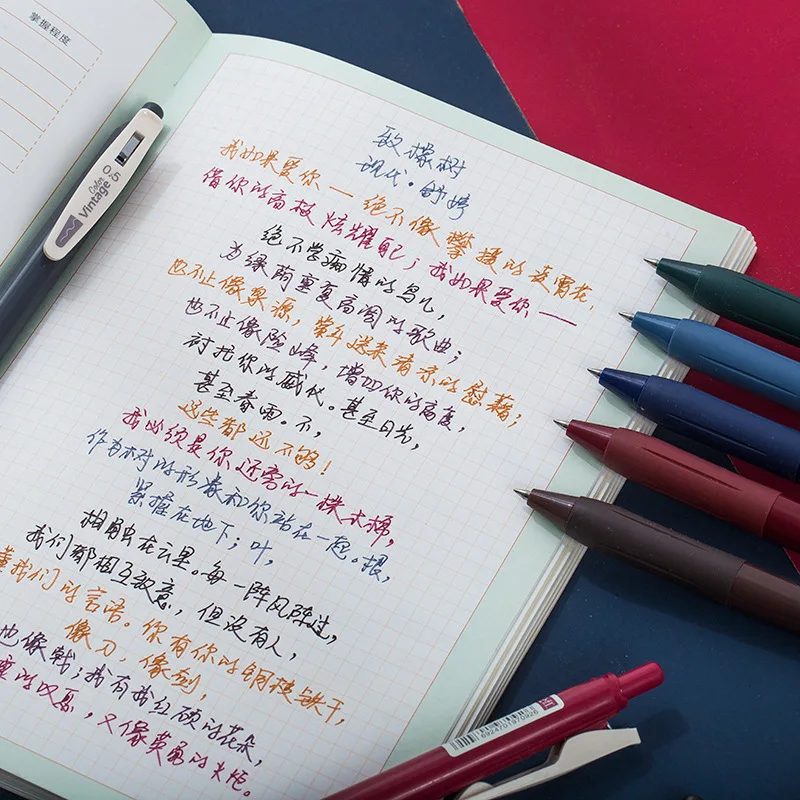 掌握程度
0.5
Color
Vintage
致橡树
现代·舒婷
我如果爱你——绝不像攀援的凌霄花,
借你的高枝炫耀自己；我如果爱你——
绝不学痴情的鸟儿,
为绿荫重复单调的歌曲；
也不止像泉源, 常年送来清凉的慰藉；
也不止像险峰, 增加你的高度,
衬托你的威仪。甚至日光,
甚至春雨。不,
这些都还不够！
我必须是你近旁的一株木棉,
作为树的形象和你站在一起。根,
紧握在地下；叶,
相触在云里。每一阵风阵过,
我们都相互致意, 但没有人,
懂我们的言语。你有你的铜枝铁干,
像刀, 像剑,
也像戟；我有我红硕的花朵,
重的叹息, 又像英勇的火炬。